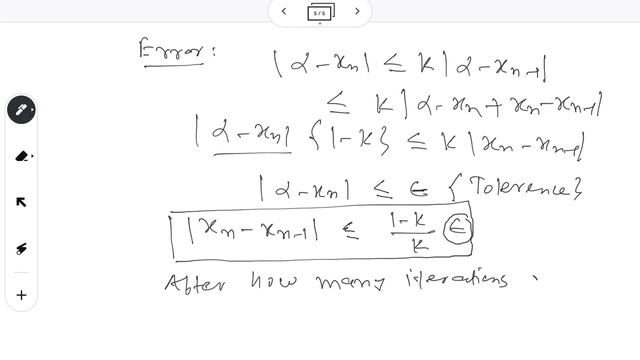 5/5
Error: |α - xn| ≤ K |α - xn-1|
≤ K |α - xn + xn - xn-1|
|α - xn| {1-K} ≤ K |xn - xn-1|
|α - xn| ≤ ϵ {Tolerence}
|xn - xn-1| ≤ 1-K/K ϵ
After how many iterations